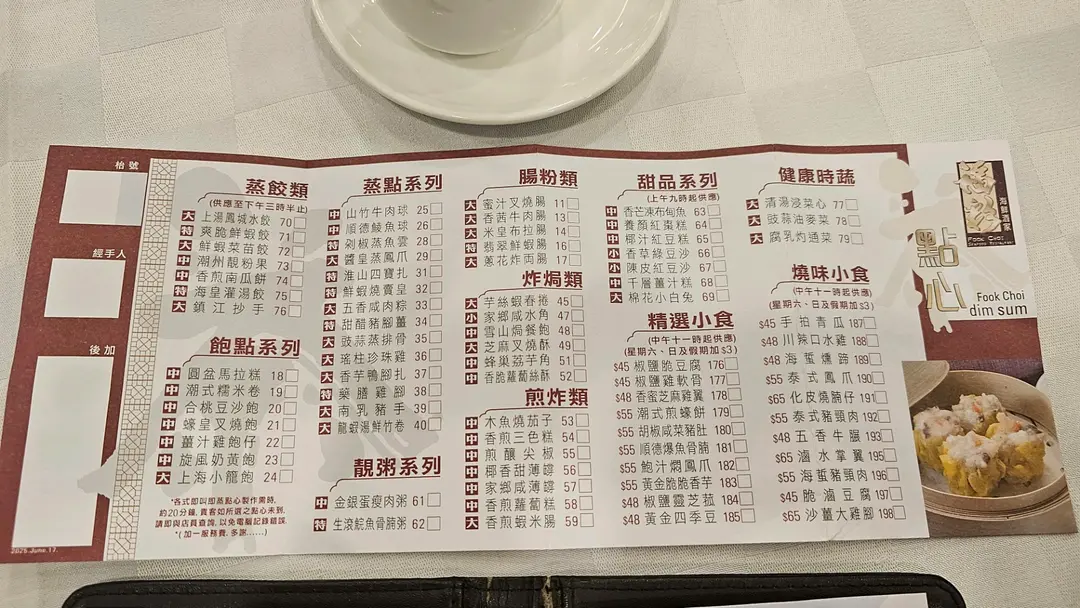 枱號
經手人
後加
2025.June.12.
蒸餃類
(供應至下午三時半止)
大 上湯鳳城水餃 70
特 爽脆鮮蝦餃 71
大 鮮蝦菜苗餃 72
中 潮州靚粉果 73
中 香煎南瓜餅 74
特 海皇灌湯餃 75
大 鎮江抄手 76
飽點系列
中 圓盆馬拉糕 18
中 潮式糯米卷 19
中 合桃豆沙飽 20
大 蠔皇叉燒飽 21
中 薑汁雞飽仔 22
中 旋風奶黃飽 23
大 上海小籠飽 24
*各式即叫即蒸點心製作需時,
約20分鐘, 貴客如所選之點心未到,
請即與店員查詢, 以免電腦記錄錯誤.
*( 加一服務費, 多謝......)
蒸點系列
中 山竹牛肉球 25
中 順德鯪魚球 26
特 剁椒蒸魚雲 28
大 醬皇蒸鳳爪 29
特 淮山四寶扎 31
特 鮮蝦燒賣皇 32
大 五香咸肉粽 33
特 甜醋豬腳薑 34
大 豉蒜蒸排骨 35
大 瑤柱珍珠雞 36
大 香芋鴨腳扎 37
特 藥膳雞腳 38
大 南乳豬手 39
大 龍蝦湯鮮竹卷 40
靚粥系列
中 金銀蛋瘦肉粥 61
特 生滾鯇魚骨腩粥 62
腸粉類
大 蜜汁叉燒腸 11
大 香茜牛肉腸 13
大 米皇布拉腸 14
特 翡翠鮮蝦腸 16
大 蔥花炸両腸 17
炸焗類
大 芋絲蝦春捲 45
小 家鄉咸水角 47
中 雪山焗餐飽 48
中 芝麻叉燒酥 49
中 蜂巢荔芋角 51
中 香脆蘿蔔絲酥 52
煎炸類
中 木魚燒茄子 53
中 香煎三色糕 54
中 煎釀尖椒 55
中 椰香甜薄罉 56
中 家鄉咸薄罉 57
中 香煎蘿蔔糕 58
大 香煎蝦米腸 59
甜品系列
(上午九時起供應)
中 香芒凍布甸魚 63
中 養顏紅棗糕 64
中 椰汁紅豆糕 65
小 香草綠豆沙 66
小 陳皮紅豆沙 67
中 千層薑汁糕 68
大 棉花小白兔 69
精選小食
(中午十一時起供應)
(星期六、日及假期加$3)
$45 椒鹽脆豆腐 176
$45 椒鹽雞軟骨 177
$48 香蜜芝麻雞翼 178
$55 潮式煎蠔餅 179
$55 胡椒咸菜豬肚 180
$55 順德爆魚骨腩 181
$55 鮑汁燜鳳爪 182
$55 黃金脆脆香芋 183
$48 椒鹽靈芝菇 184
$48 黃金四季豆 185
健康時蔬
大 清湯浸菜心 77
大 豉蒜油麥菜 78
大 腐乳灼通菜 79
燒味小食
(中午十一時起供應)
(星期六、日及假期加$3)
$45 手拍青瓜 187
$48 川辣口水雞 188
$48 海蜇燻蹄 189
$55 泰式鳳爪 190
$65 化皮燒腩仔 191
$55 泰式豬頸肉 192
$48 五香牛𦟌 193
$65 滷水掌翼 195
$55 海蜇豬頸肉 196
$45 脆滷豆腐 197
$65 沙薑大雞腳 198
海鮮酒家
Fook Choi
Seafood Restaurant
點心
Fook Choi
dim sum